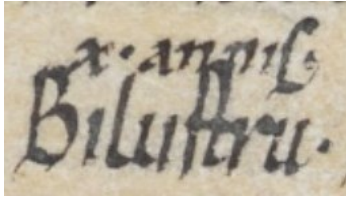 x. annis
Bilustru.